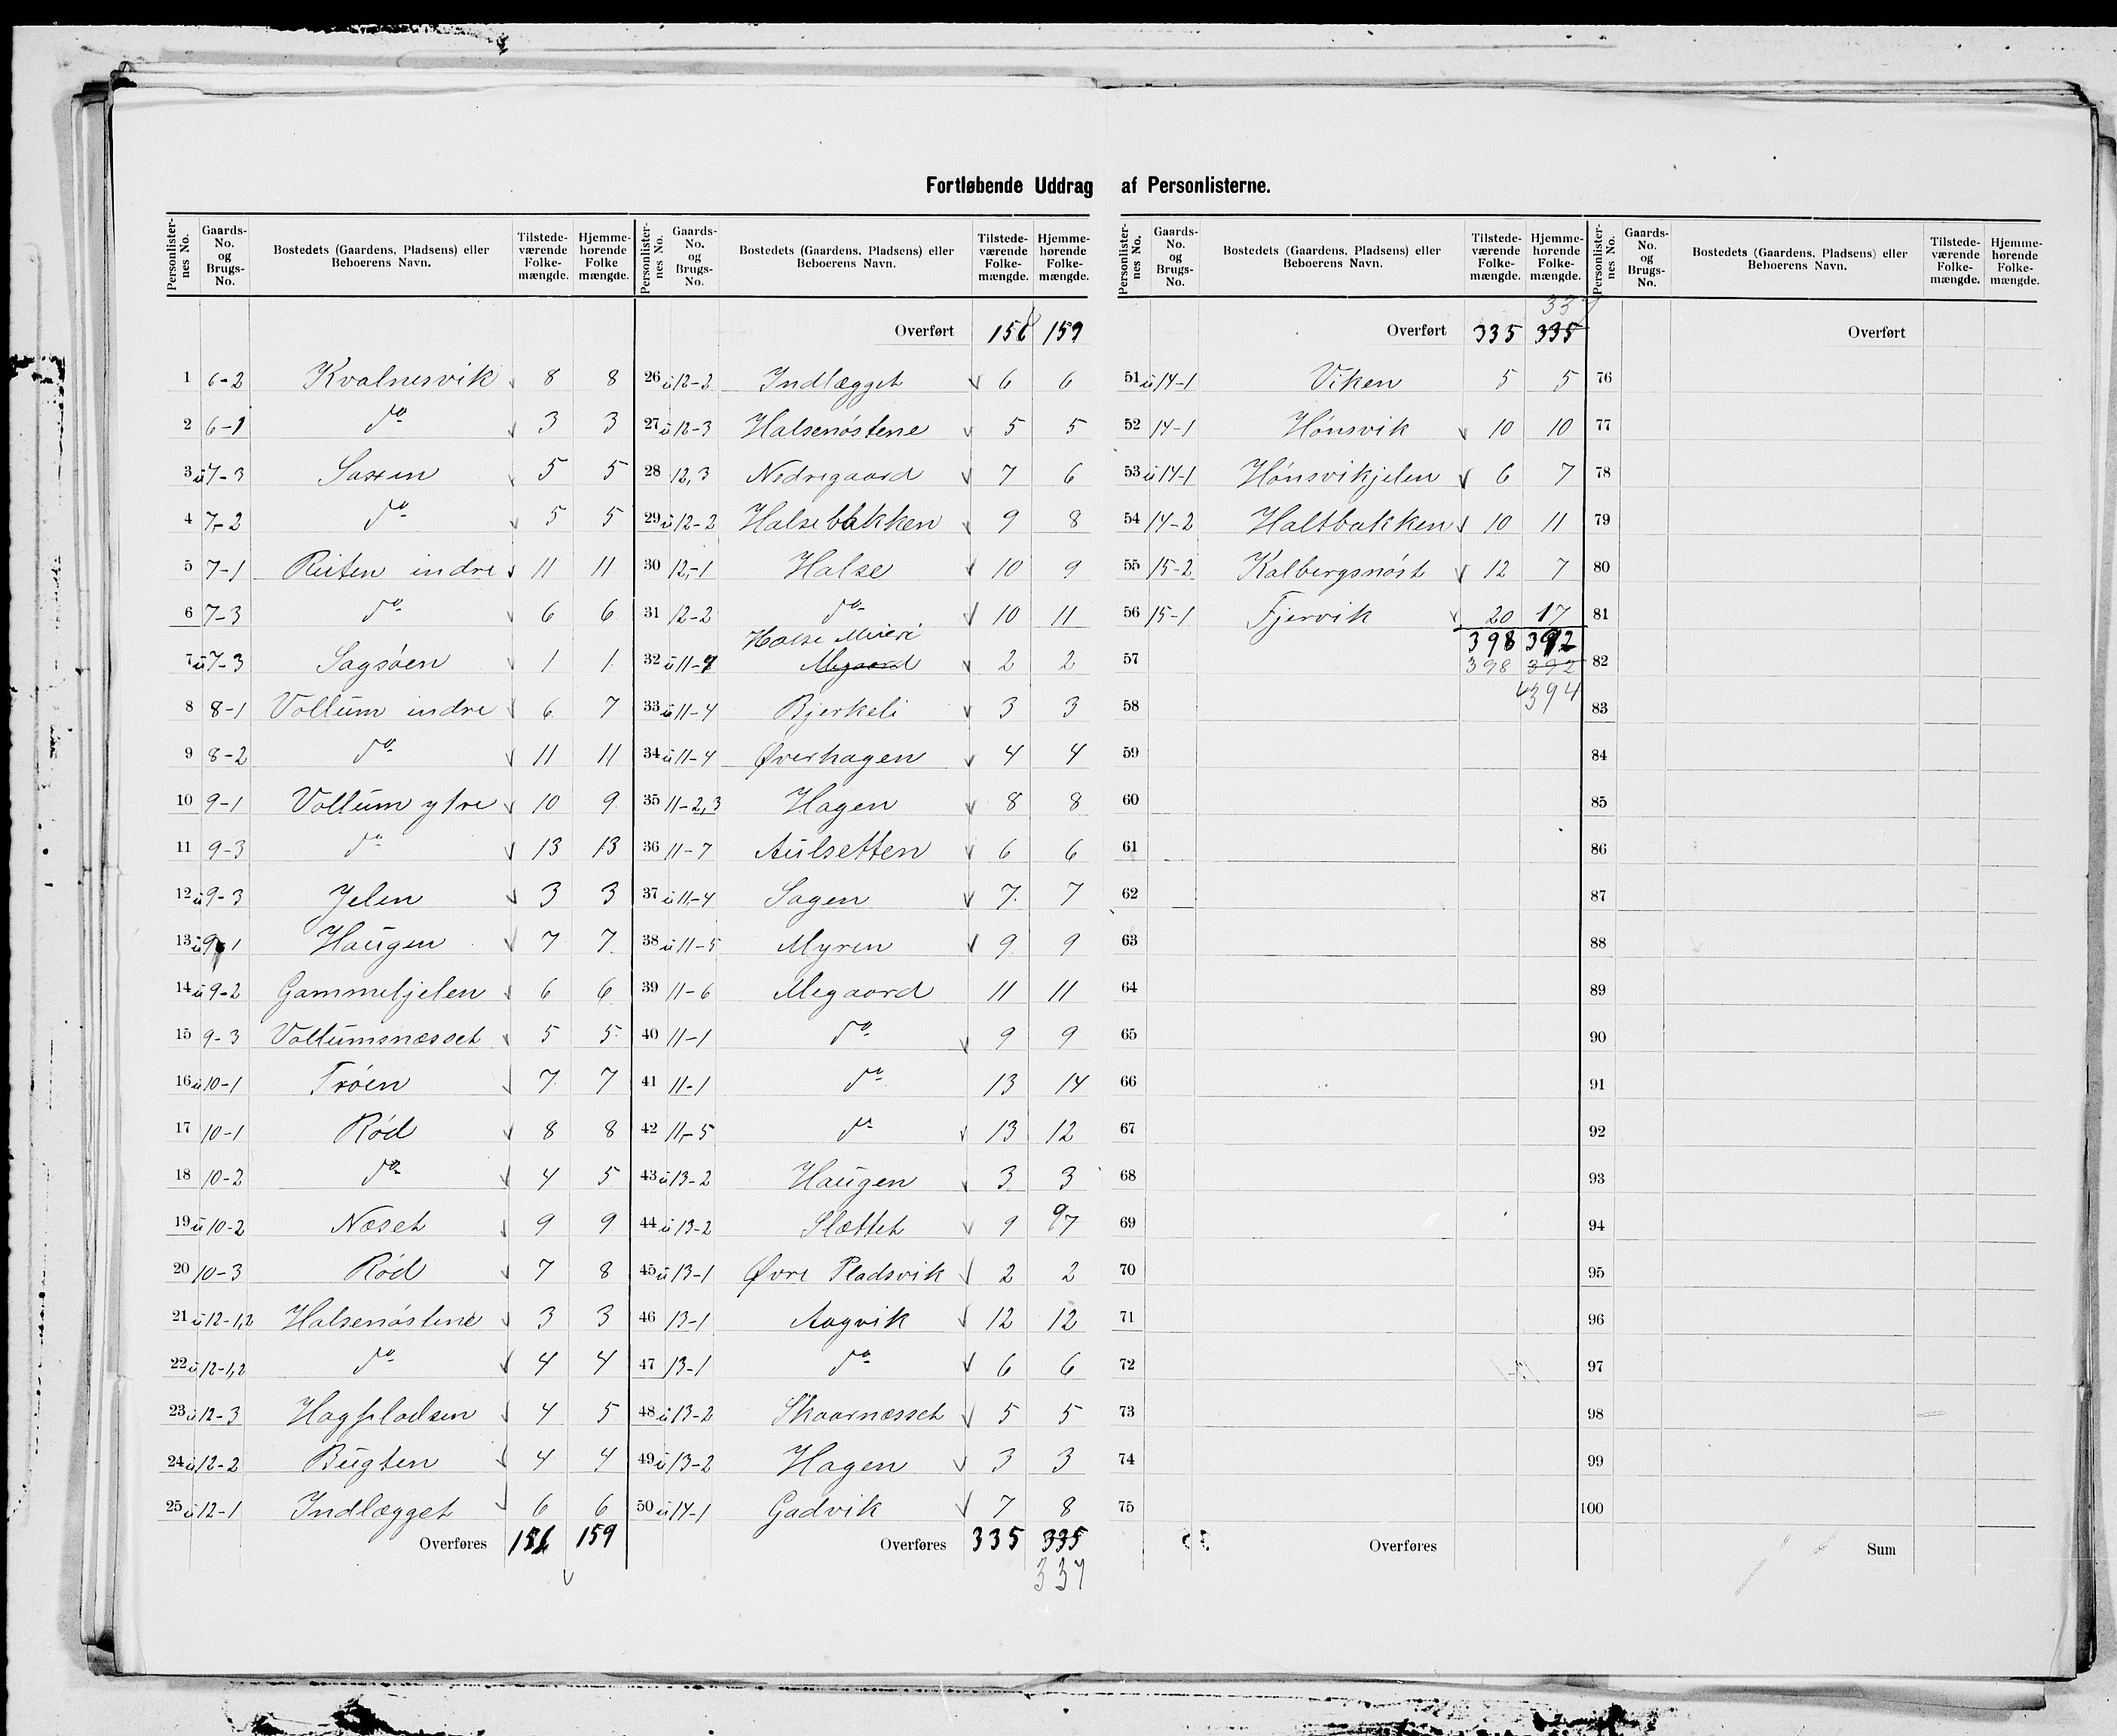 Fortløbende Uddrag af Personlisterne.
Personlisternes No. Gaards-No. og Brugs-No. Bostedets (Gaardens, Pladsens) eller Beboerens Navn. Tilstedeværende Folkemængde. Hjemmehørende Folkemængde.
1 6-2 Kvalnesvik 8 8
2 6-1 do 3 3
3 u 7-3 Saxen 5 5
4 7-2 do 5 5
5 7-1 Reiten indre 11 11
6 7-3 do 6 6
7 u 7-3 Sagsöen 1 1
8 8-1 Vollum indre 6 7
9 8-2 do 11 11
10 9-1 Vollum ytre 10 9
11 9-3 do 13 13
12 u 9-3 Jelen 3 3
13 u 9-1 Haugen 7 7
14 u 9-2 Gammeljelen 6 6
15 9-3 Vollumsnæsset 5 5
16 u 10-1 Tröen 7 7
17 10-1 Rød 8 8
18 10-2 do 4 5
19 u 10-2 Næset 9 9
20 10-3 Rød 7 8
21 u 12-1,2 Halsenøstene 3 3
22 u 12-1,2 do 4 4
23 u 12-3 Hagpladsen 4 5
24 u 12-2 Bugten 4 4
25 u 12-1 Indlægget 6 6
Overføres 156 159
Personlisternes No. Gaards-No. og Brugs-No. Bostedets (Gaardens, Pladsens) eller Beboerens Navn. Tilstedeværende Folkemængde. Hjemmehørende Folkemængde.
Overført 156 159
26 u 12-2 Indlægget 6 6
27 u 12-3 Halsenøstene 5 5
28 12,3 Nedregaard 7 6
29 u 12-2 Halsebakken 9 8
30 12-1 Halse 10 9
31 12-2 do 10 11
Halse Meieri
32 u 11-9 Megaard 2 2
33 u 11-4 Bjerkeli 3 3
34 u 11-4 Øverhagen 4 4
35 11-2,3 Hagen 8 8
36 11-7 Aulsetten 6 6
37 u 11-4 Sagen 7 7
38 u 11-5 Myren 9 9
39 11-6 Megaard 11 11
40 11-1 do 9 9
41 11-1 do 13 14
42 11-5 do 13 12
43 u 13-2 Haugen 3 3
44 u 13-2 Slættet 9 97
45 u 13-1 Øvre Pladsvik 2 2
46 13-1 Aagvik 12 12
47 13-1 do 6 6
48 u 13-2 Skaarnæsset 5 5
49 u 13-2 Hagen 3 3
50 u 14-1 Gadvik 7 8
Overføres 335 335
337
Personlisternes No. Gaards-No. og Brugs-No. Bostedets (Gaardens, Pladsens) eller Beboerens Navn. Tilstedeværende Folkemængde. Hjemmehørende Folkemængde.
337
Overført 335 335
51 u 14-1 Viken 5 5
52 14-1 Hønsvik 10 10
53 u 14-1 Hønsvikjelen 6 7
54 14-2 Haltbakken 10 11
55 15-2 Kalbergsnøst 12 7
56 15-1 Fjervik 20 17
398 392
57 398 392
58 394
59
60
61
62
63
64
65
66
67
68
69
70
71
72
73
74
75
Overføres
Personlisternes No. Gaards-No. og Brugs-No. Bostedets (Gaardens, Pladsens) eller Beboerens Navn. Tilstedeværende Folkemængde. Hjemmehørende Folkemængde.
Overført
76
77
78
79
80
81
82
83
84
85
86
87
88
89
90
91
92
93
94
95
96
97
98
99
100
Sum